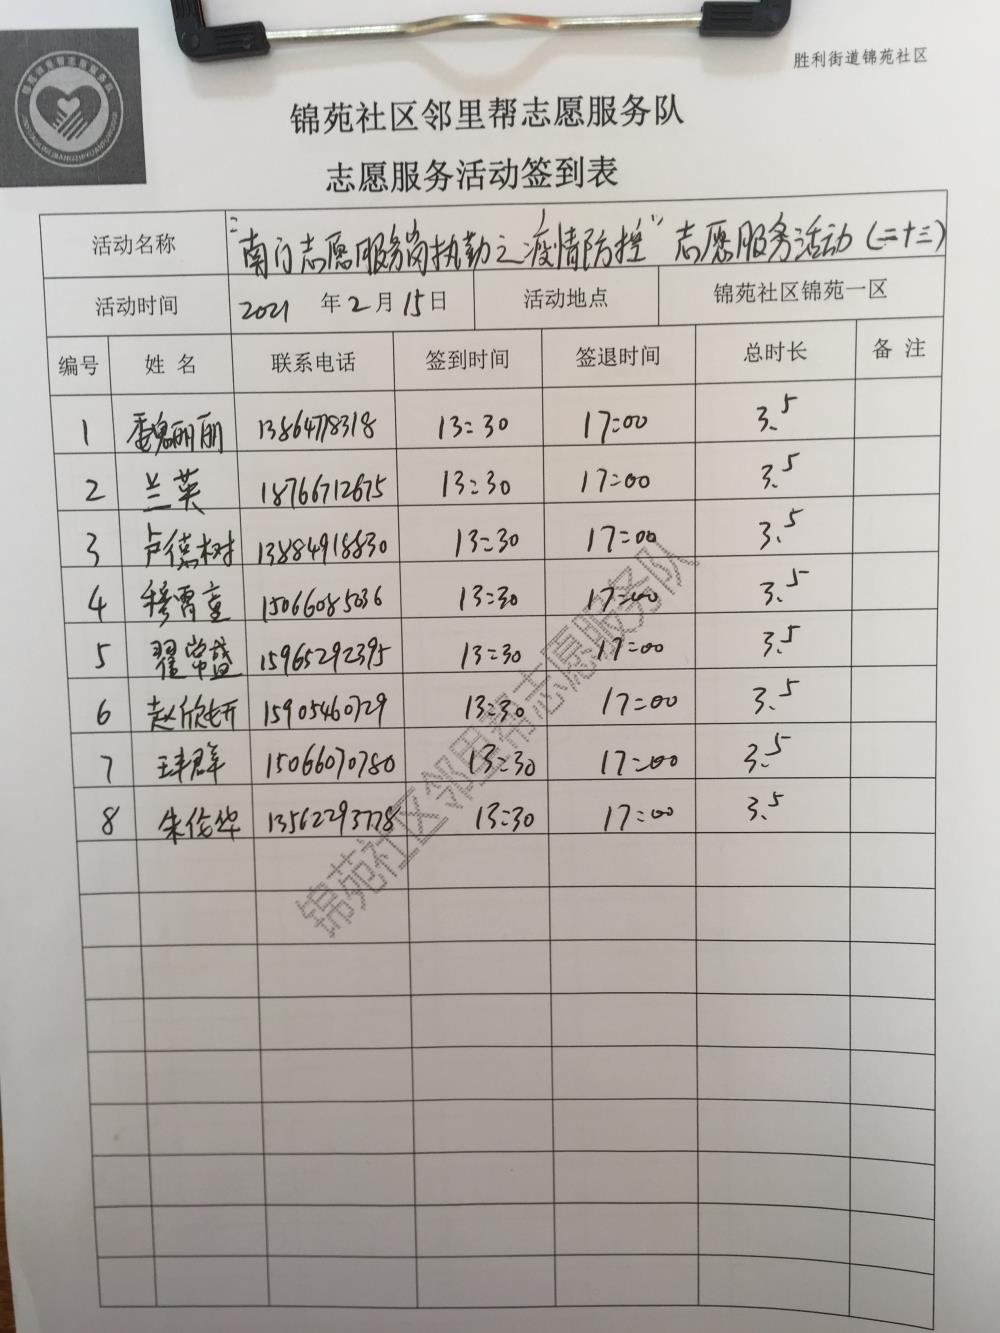 胜利街道锦苑社区
锦苑社区邻里帮志愿服务队
志愿服务活动签到表
活动名称 “南门志愿服务岗执勤之疫情防控”志愿服务活动(二十三)
活动时间 2021 年 2 月 15 日 活动地点 锦苑社区锦苑一区
编号 姓 名 联系电话 签到时间 签退时间 总时长 备 注
1 魏丽丽 13864778318 13:30 17:00 3.5
2 兰英 18766712675 13:30 17:00 3.5
3 卢德树 13884918830 13:30 17:00 3.5
4 穆霄童 15066085036 13:30 17:00 3.5
5 翟常盛 15965292395 13:30 17:00 3.5
6 赵欣妍 15905460729 13:30 17:00 3.5
7 群 15066070780 13:30 17:00 3.5
8 朱伦华 13562293778 13:30 17:00 3.5
锦苑社区邻里帮志愿服务队